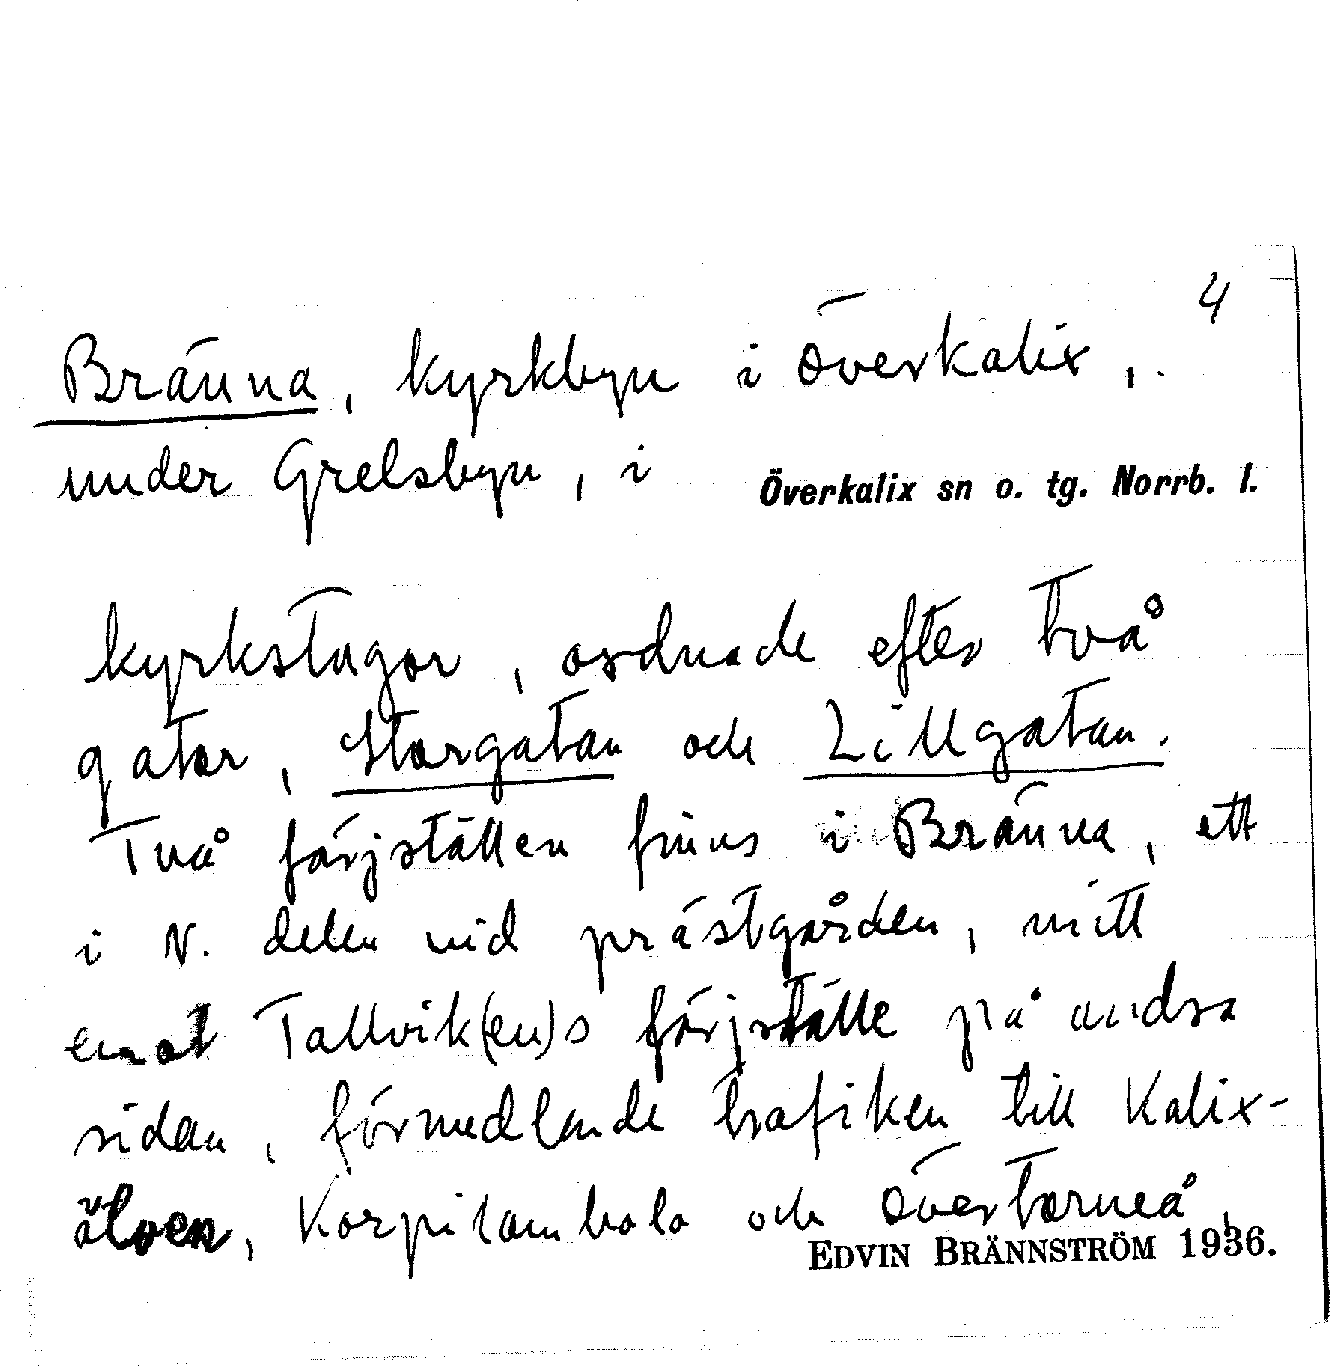 4
Bränna, kyrkbyn i Överkalix,.
under Grelsbyn, i Överkalix sn o. tg. Norrb. l.
kyrkstugor, ordnade efter två
gator, Storgatan och Lillgatan.
Två färjställen finns i Bränna, ett
i N. delen vid prästgården, mitt
emot Tallvik(en)s färjställe på andra
sidan, förmedlande trafiken till Kalix-
älven, Korpilombolo och Övertorneå,
EDVIN BRÄNNSTRÖM 1936.